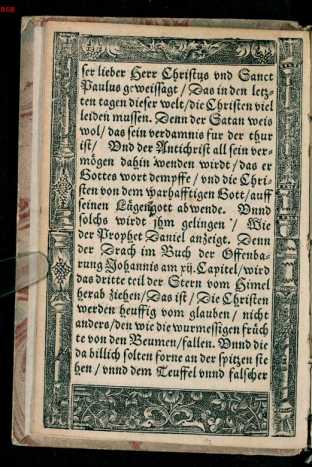 ser lieber Herr Christus vnd Sanct
Paulus geweissagt / Das in den letz-
ten tagen dieser welt / die Christen viel
leiden mussen. Denn der Satan weis
wol / das sein verdamnis fur der thur
ist / Vnd der Antichrist all sein ver-
mögen dahin wenden wirdt / das er
Gottes wort dempffe / vnd die Chri-
sten von dem warhafftigen Gott / auff
seinen Lügengott abwende. Vnnd
solchs wirdt jhm gelingen / Wie
der Prophet Daniel anzeigt. Denn
der Drach im Buch der Offenba-
rung Johannis am xij. Capitel / wird
das dritte teil der Stern vom Himel
herab ziehen / Das ist / Die Christen
werden heuffig vom glauben / nicht
anders / den wie die wurmessigen früch
te von den Beumen / fallen. Vnnd die
da billich solten forne an der spitzen ste
hen / vnnd dem Teuffel vnnd falscher